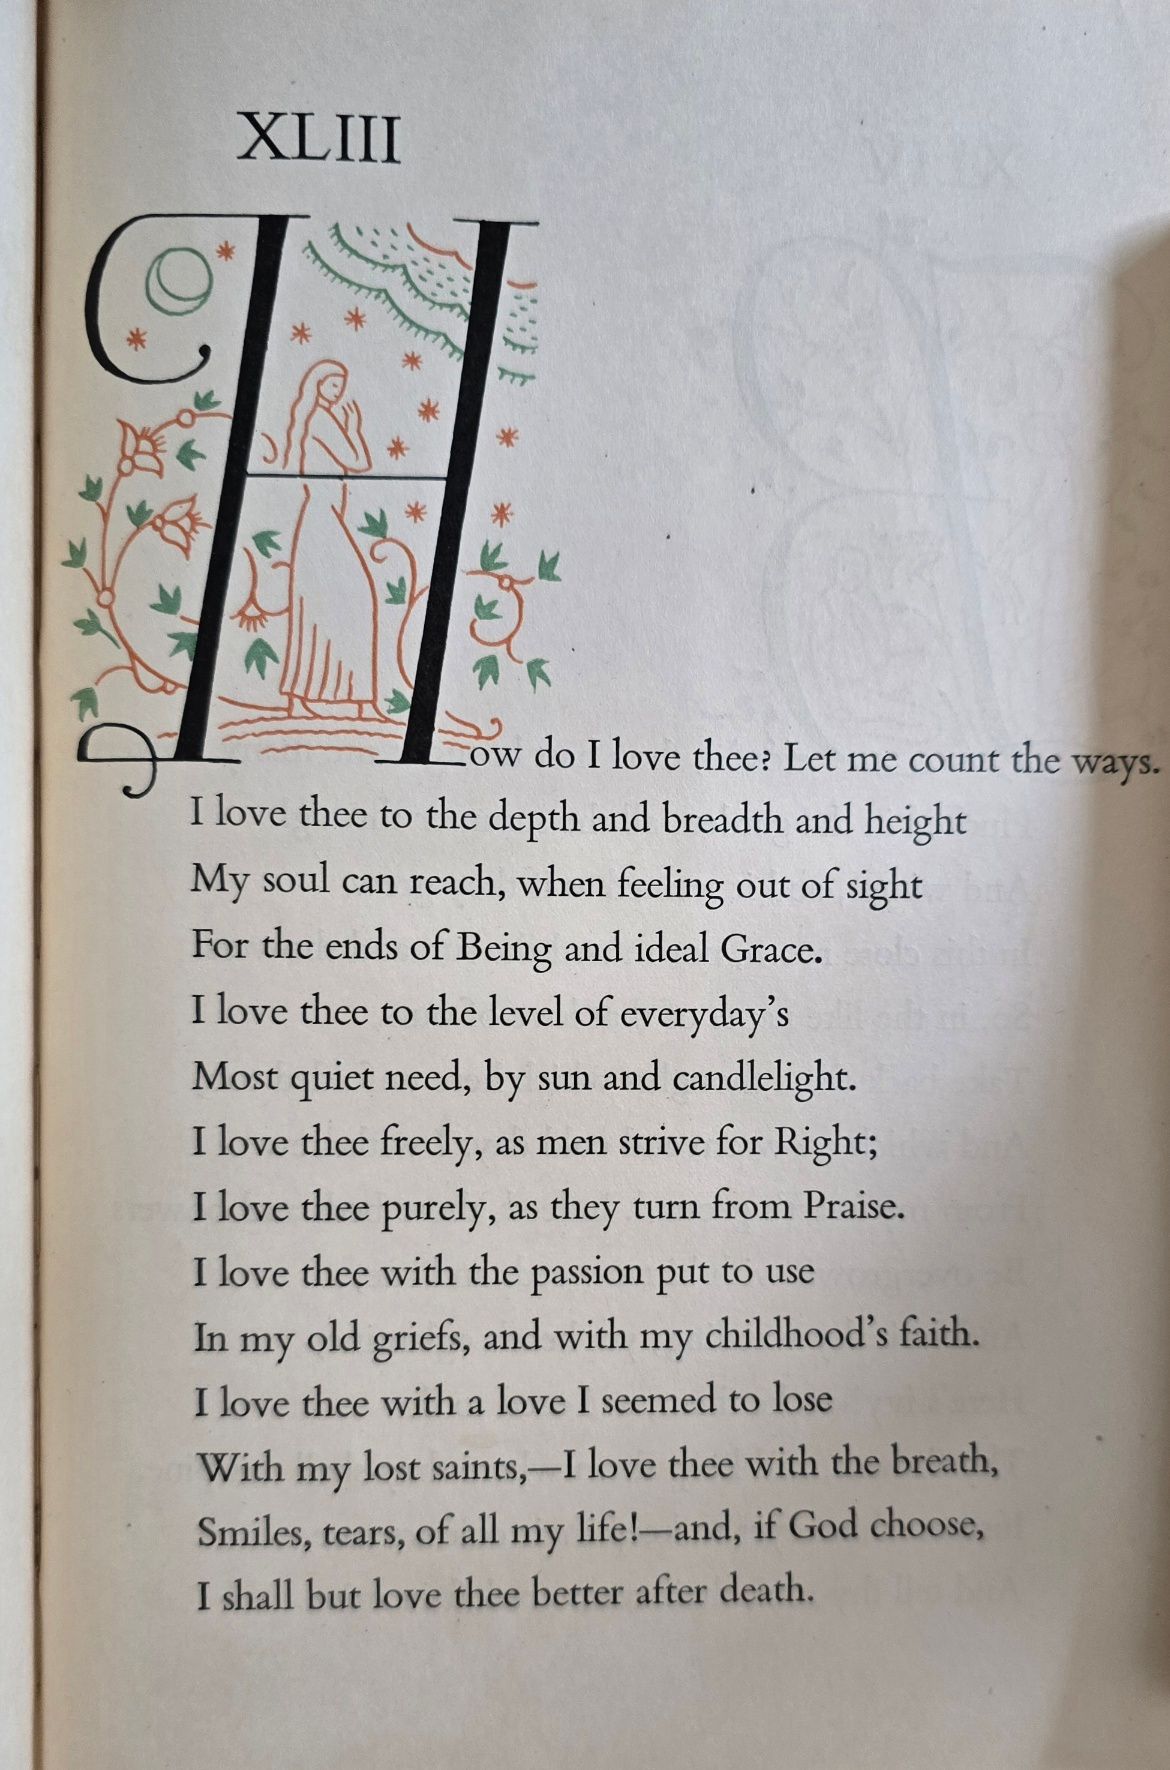 XLIII
How do I love thee? Let me count the ways.
I love thee to the depth and breadth and height
My soul can reach, when feeling out of sight
For the ends of Being and ideal Grace.
I love thee to the level of everyday’s
Most quiet need, by sun and candlelight.
I love thee freely, as men strive for Right;
I love thee purely, as they turn from Praise.
I love thee with the passion put to use
In my old griefs, and with my childhood’s faith.
I love thee with a love I seemed to lose
With my lost saints,—I love thee with the breath,
Smiles, tears, of all my life!—and, if God choose,
I shall but love thee better after death.